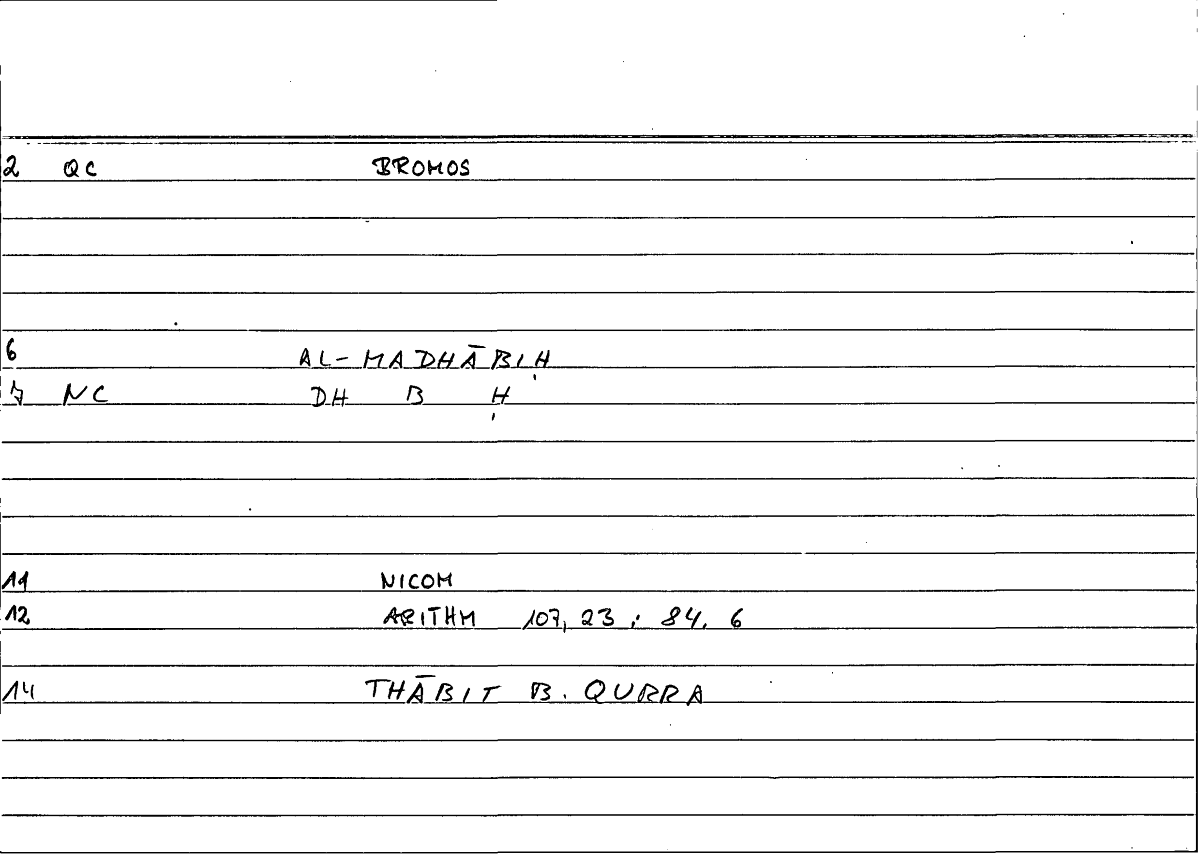 2 QC BROMOS
6 AL-MADHĀBIḤ
7 NC DH B Ḥ
11 NICOM
12 ARITHM 107, 23 ; 84. 6
14 THĀBIT B. QURRA